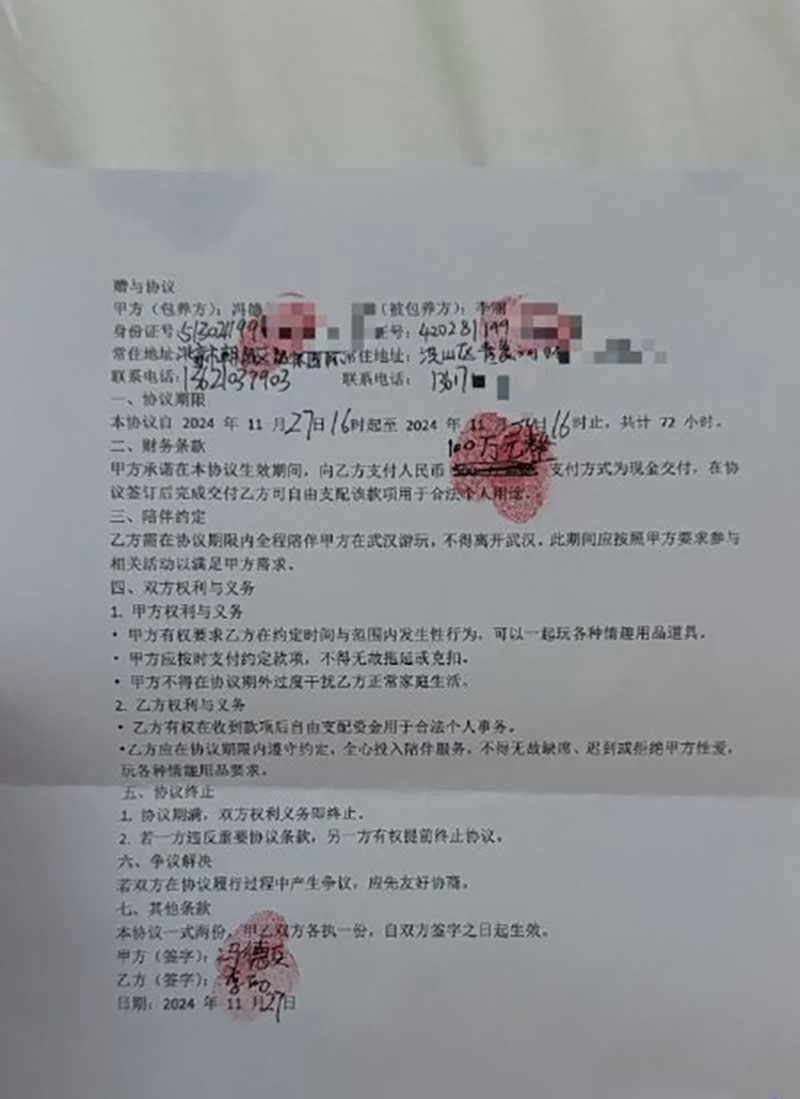 赠与协议
甲方（包养方）：冯德 （被包养方）：李
身份证号：51302199 证号：420281199
常住地址： 常住地址：洪山区
联系电话：13621039903 联系电话：1361
一、协议期限
本协议自 2024 年 11 月27日16时起至 2024 年 11 月 日16时止，共计 72 小时。
二、财务条款
100万元整
甲方承诺在本协议生效期间，向乙方支付人民币 支付方式为现金交付，在协
议签订后完成交付乙方可自由支配该款项用于合法个人用途。
三、陪伴约定
乙方需在协议期限内全程陪伴甲方在武汉游玩，不得离开武汉。此期间应按照甲方要求参与
相关活动以满足甲方需求。
四、双方权利与义务
1. 甲方权利与义务
• 甲方有权要求乙方在约定时间与范围内发生性行为，可以一起玩各种情趣用品道具。
• 甲方应按时支付约定款项，不得无故拖延或克扣。
• 甲方不得在协议期外过度干扰乙方正常家庭生活。
2. 乙方权利与义务
• 乙方有权在收到款项后自由支配资金用于合法个人事务。
•乙方应在协议期限内遵守约定，全心投入陪伴服务，不得无故缺席、迟到或拒绝甲方性爱，
玩各种情趣用品要求。
五、协议终止
1. 协议期满，双方权利义务即终止。
2. 若一方违反重要协议条款，另一方有权提前终止协议。
六、争议解决
若双方在协议履行过程中产生争议，应先友好协商。
七、其他条款
本协议一式两份，甲乙双方各执一份，自双方签字之日起生效。
甲方（签字）：冯德
乙方（签字）：李
日期：2024 年 11 月27日